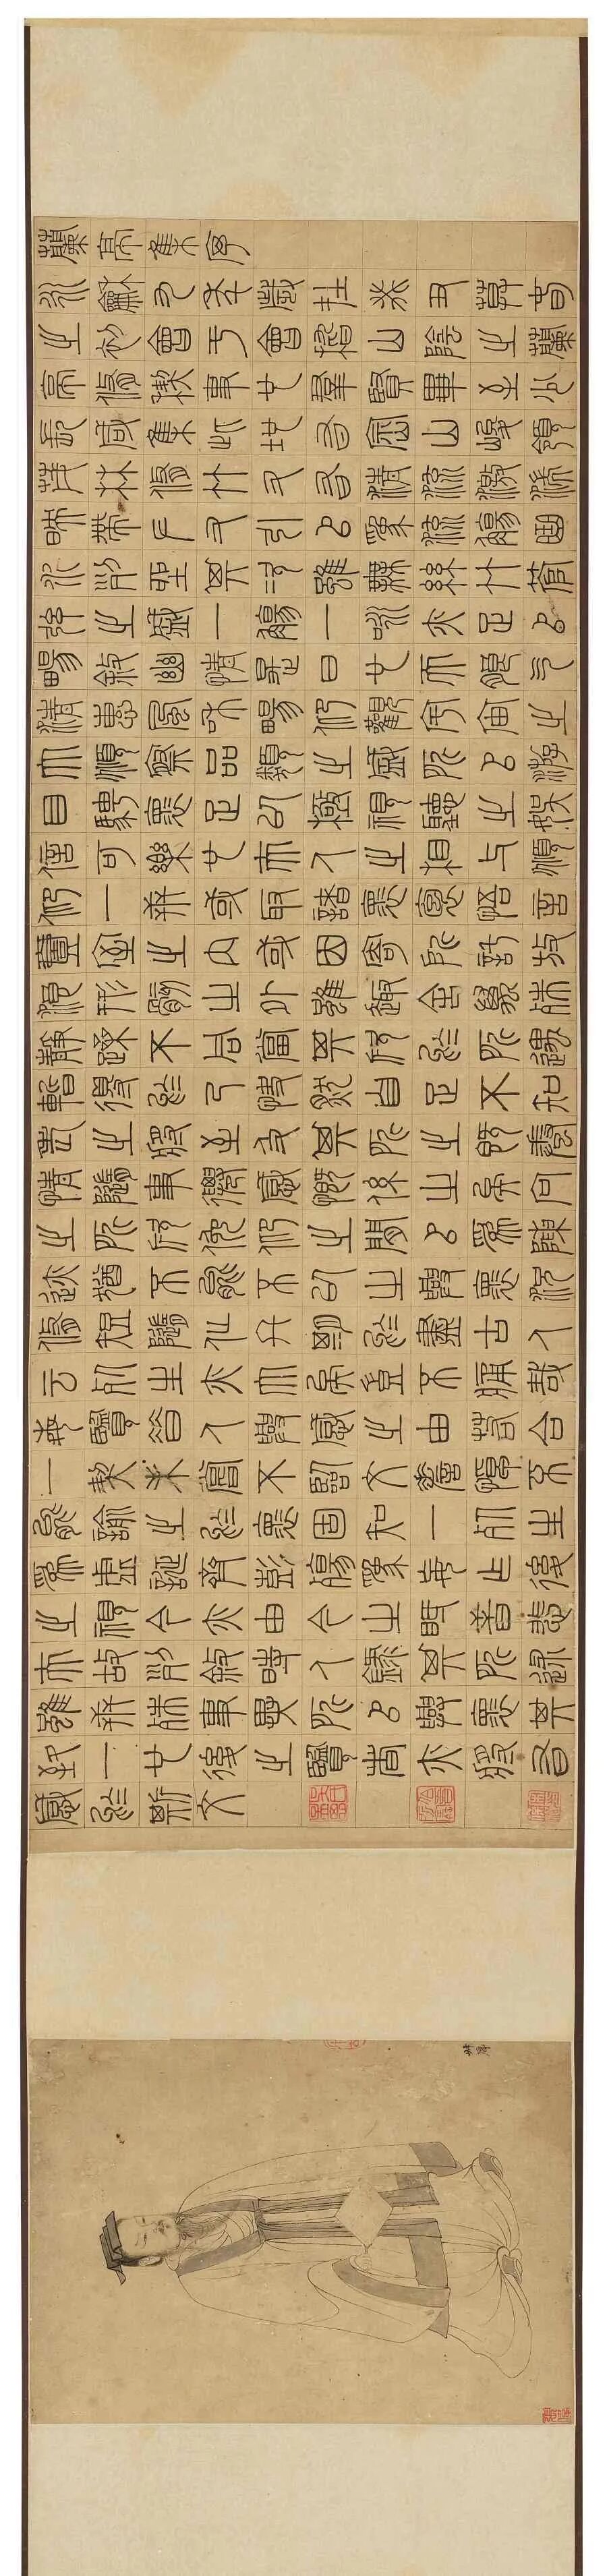 蘭亭集序
永和九年歲在癸丑暮春
之初會于會稽山陰之蘭
亭脩禊事也羣賢畢至少
長咸集此地有崇山峻領
茂林脩竹又有清流激湍
映帶左右引以為流觴曲
水列坐其次雖無絲竹管
絃之盛一觴一詠亦足以
暢敘幽情是日也天朗氣
清惠風和暢仰觀宇宙之
大俯察品類之盛所以遊
目騁懷足以極視聽之娛
信可樂也夫人之相與俯
仰一世或取諸懷抱悟言
壹室之內或因寄所託放
浪形骸之外雖趣舍萬殊
靜躁不同當其欣於所遇
暫得於己快然自足不知
老之將至及其所之既惓
情隨事遷感慨係之矣向
之所欣俛仰之間以為陳
迹猶不能不以之興懷況
脩短隨化終期於盡古人
云死生亦大矣豈不痛哉
每覽昔人興感之由若合
一契未嘗不臨文嗟悼不
能喻之於懷固知一死生
為虛誕齊彭殤為妄作後
之視今亦由今之視昔悲
夫故列敘時人錄其所述
雖世殊事異所以興懷其
致一也後之覽者亦將有
感於斯文